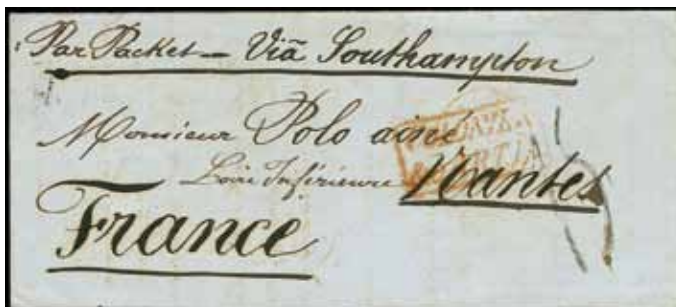 Par Packet — Viã Southampton
Monsieur Polo ainé
Loire Inférieure Nantes
France